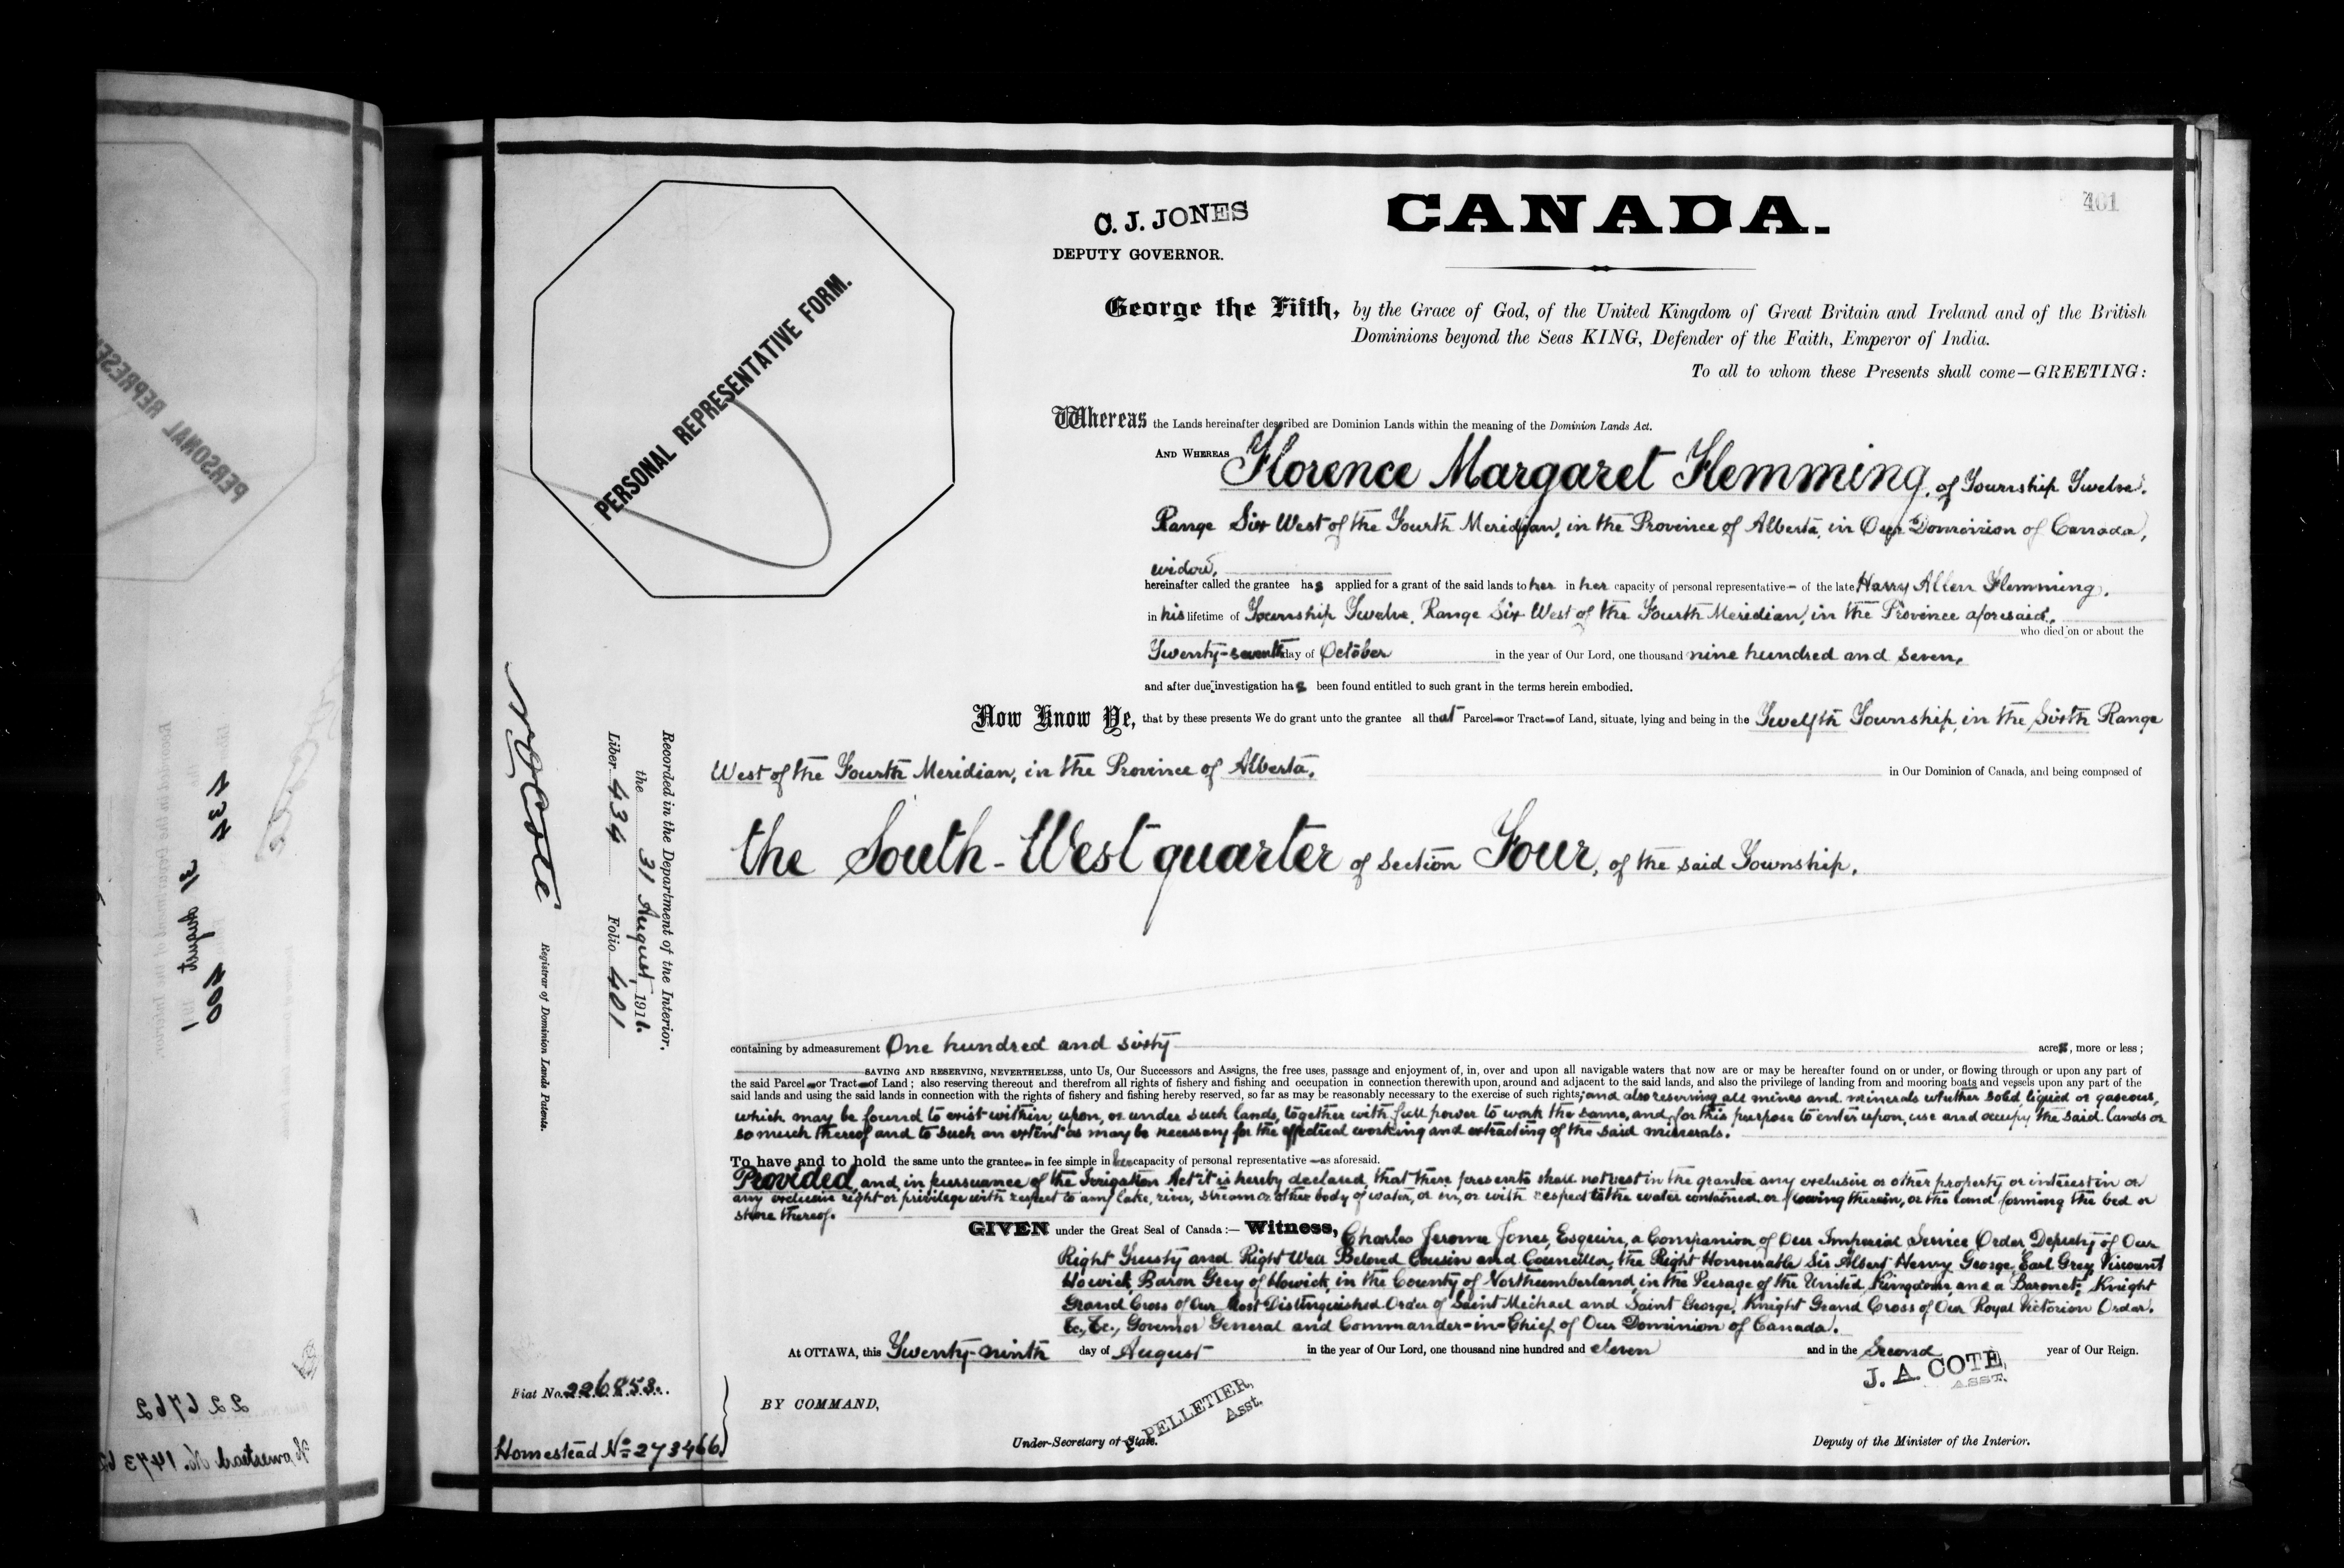 401
C. J. JONES
CANADA.
DEPUTY GOVERNOR.
PERSONAL REPRESENTATIVE FORM.
George the Fifth, by the Grace of God, of the United Kingdom of Great Britain and Ireland and of the British
Dominions beyond the Seas KING, Defender of the Faith, Emperor of India.
To all to whom these Presents shall come—GREETING:
Whereas the Lands hereinafter described are Dominion Lands within the meaning of the Dominion Lands Act.
AND WHEREAS Florence Margaret Flemming, of Township Twelve,
Range Six West of the Fourth Meridian, in the Province of Alberta, in Our Dominion of Canada,
widow,
hereinafter called the grantee has applied for a grant of the said lands to her in her capacity of personal representative of the late Harry Allen Flemming,
in his lifetime of Township Twelve, Range Six West of the Fourth Meridian, in the Province aforesaid,
who died on or about the
Twenty-seventh day of October in the year of Our Lord, one thousand nine hundred and seven,
and after due investigation has been found entitled to such grant in the terms herein embodied.
Now Know Ye, that by these presents We do grant unto the grantee all that Parcel or Tract of Land, situate, lying and being in the Twelfth Township, in the Sixth Range
West of the Fourth Meridian, in the Province of Alberta, in Our Dominion of Canada, and being composed of
the South-West quarter of section Four, of the said Township,
containing by admeasurement One hundred and sixty acres, more or less;
SAVING AND RESERVING, NEVERTHELESS, unto Us, Our Successors and Assigns, the free uses, passage and enjoyment of, in, over and upon all navigable waters that now are or may be hereafter found on or under, or flowing through or upon any part of
the said Parcel or Tract of Land; also reserving thereout and therefrom all rights of fishery and fishing and occupation in connection therewith upon, around and adjacent to the said lands, and also the privilege of landing from and mooring boats and vessels upon any part of the
said lands and using the said lands in connection with the rights of fishery and fishing hereby reserved, so far as may be reasonably necessary to the exercise of such rights; and also reserving all mines and minerals whether solid liquid or gaseous,
which may be found to exist within, upon, or under such lands, together with full power to work the same, and for this purpose to enter upon, use and occupy the said lands or
so much thereof and to such an extent as may be necessary for the effectual working and extracting of the said minerals.
To have and to hold the same unto the grantee in fee simple in her capacity of personal representative as aforesaid.
Provided, and in pursuance of the Irrigation Act it is hereby declared, that these presents shall not vest in the grantee any exclusive or other property or interest in or
any exclusive right or privilege with respect to any lake, river, stream or other body of water, or in, or with respect to the water contained or flowing therein, or the land forming the bed or
shore thereof.
GIVEN under the Great Seal of Canada:— Witness, Charles Jerome Jones, Esquire, a Companion of Our Imperial Service Order, Deputy of Our
Right Trusty and Right Well Beloved Cousin and Councillor, the Right Honourable Sir Albert Henry George, Earl Grey, Viscount
Howick, Baron Grey of Howick, in the County of Northumberland, in the Peerage of the United Kingdom, and a Baronet; Knight
Grand Cross of Our Most Distinguished Order of Saint Michael and Saint George, Knight Grand Cross of Our Royal Victorian Order,
&c., &c., Governor General and Commander-in-Chief of Our Dominion of Canada.
At OTTAWA, this Twenty-ninth day of August in the year of Our Lord, one thousand nine hundred and eleven and in the Second year of Our Reign.
J. A. COTE,
ASST.
BY COMMAND,
PELLETIER,
Asst.
Under-Secretary of State.
Deputy of the Minister of the Interior.
Recorded in the Department of the Interior,
the 31 August, 1911.
Liber 434 Folio 401
N. O. Coté
Registrar of Dominion Lands Patents.
Fiat No. 226858.
Homestead No. 273466
PERSONAL REPRESE
31 August 1911
400
226762